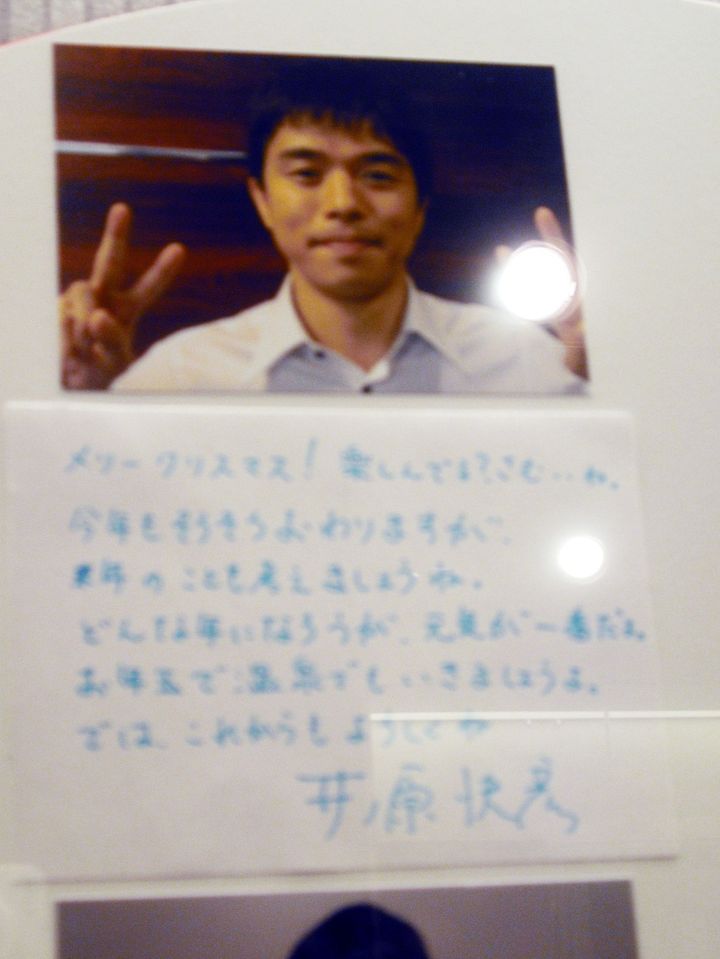 メリークリスマス！楽しんでる？さむいね。
今年もそろそろおわりますが、
来年のことも考えましょうね。
どんな年になろうが、元気が一番だよ。
お年玉で温泉でもいきましょうよ。
では、これからもよろしくね
井ノ原快彦